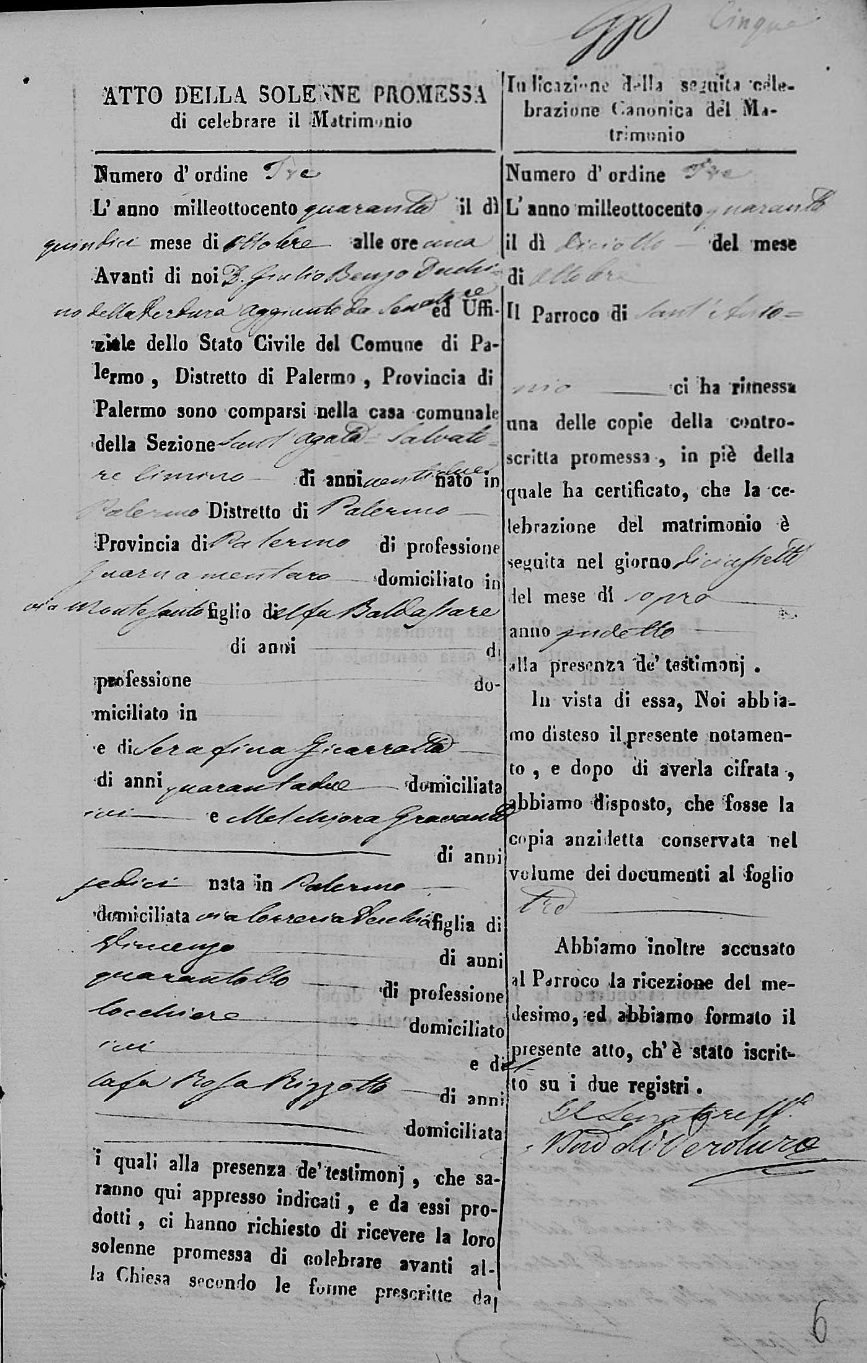 Cinque
ATTO DELLA SOLENNE PROMESSA
di celebrare il Matrimonio
Numero d' ordine Tre
L' anno milleottocento quaranta il dì
quindici mese di Ottobre alle ore una
Avanti di noi D. Giulio Benzo Duchi-
no della Verdura aggiunto da Senatore ed Uffi-
ziale dello Stato Civile del Comune di Pa-
lermo , Distretto di Palermo , Provincia di
Palermo sono comparsi nella casa comunale
della Sezione Sant' Agata Salvato-
re Cimino di anni ventidue nato in
Palermo Distretto di Palermo
Provincia di Palermo di professione
Guarnamentaro domiciliato in
via Montesanto figlio di Baldassare
di anni di
professione do-
miciliato in
e di Serafina Gicarrotta
di anni quarantadue domiciliata
ivi e Melchiora
di anni
sedici nata in Palermo
domiciliata via Correria Vecchia figlia di
Vincenzo di anni
quarantotto di professione
Cocchiere domiciliato
ivi e di
Rosa Rizzotto di anni
domiciliata
i quali alla presenza de' testimonj , che sa-
ranno qui appresso indicati , e da essi pro-
dotti , ci hanno richiesto di ricevere la loro
solenne promessa di celebrare avanti al-
la Chiesa secondo le forme prescritte dal
Indicazione della seguita cele-
brazione Canonica del Ma-
trimonio
Numero d' ordine Tre
L' anno milleottocento quaranta
il dì Diciotto del mese
di Ottobre
Il Parroco di Sant' Anto=
nio ci ha rimessa
una delle copie della contro-
scritta promessa , in piè della
quale ha certificato, che la ce-
lebrazione del matrimonio è
seguita nel giorno diciassette
del mese di sopra
anno sudetto
alla presenza de' testimonj .
In vista di essa, Noi abbia-
mo disteso il presente notamen-
to , e dopo di averla cifrata ,
abbiamo disposto, che fosse la
copia anzidetta conservata nel
volume dei documenti al foglio
tre
Abbiamo inoltre accusato
al Parroco la ricezione del me-
desimo, ed abbiamo formato il
presente atto, ch' è stato iscrit-
to su i due registri .
di Verdura
6